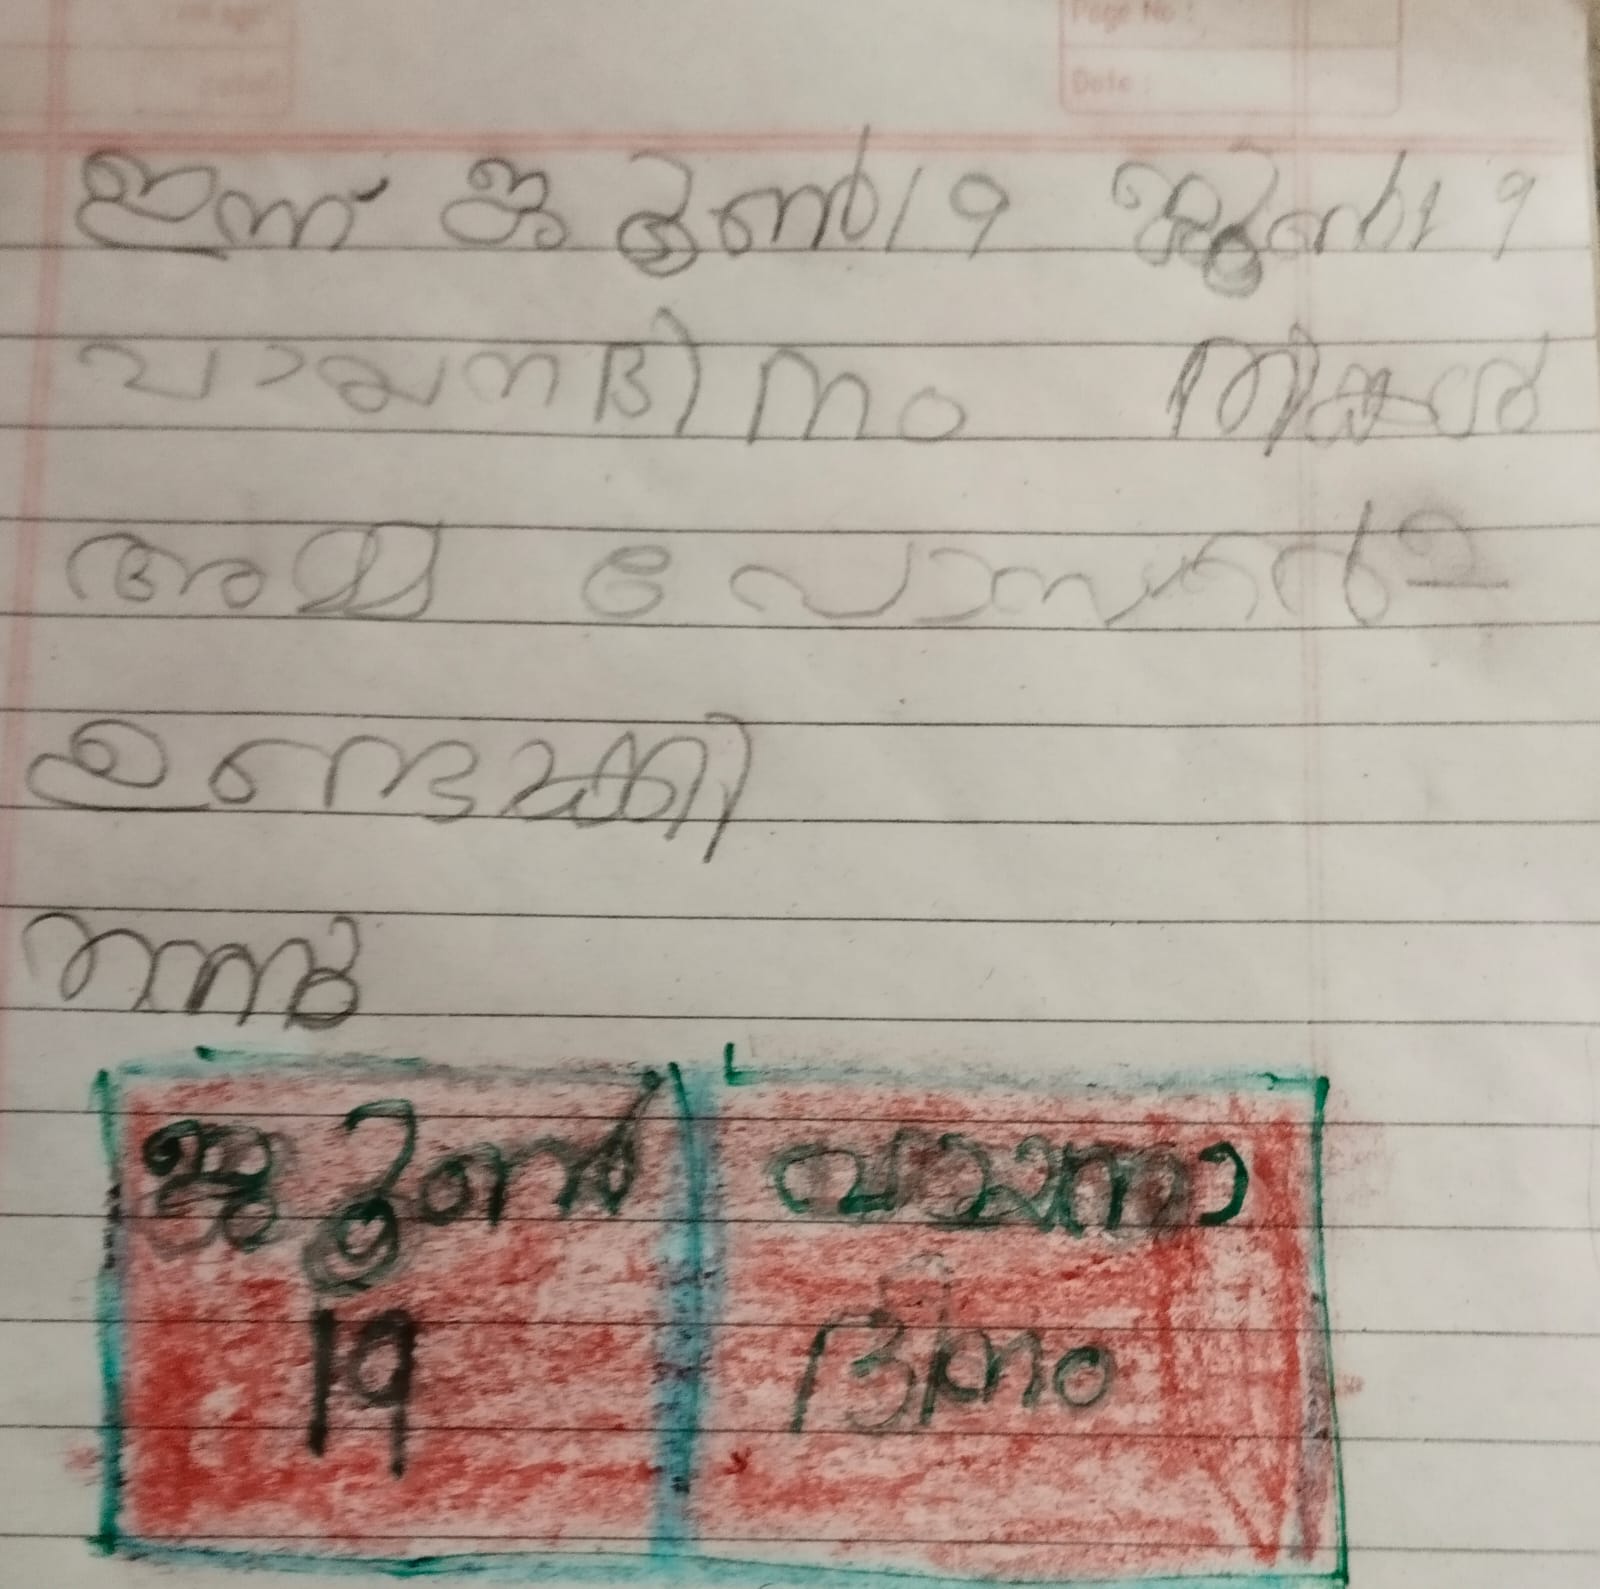 Page No :
Date :
ഇന്ന് ജൂൺ 19 ജൂൺ 19
വായനദിനം
അമ്മ പോസ്റ്റർ
ഉണ്ടാക്കി
ജൂൺ വായനാ
19 ദിനം